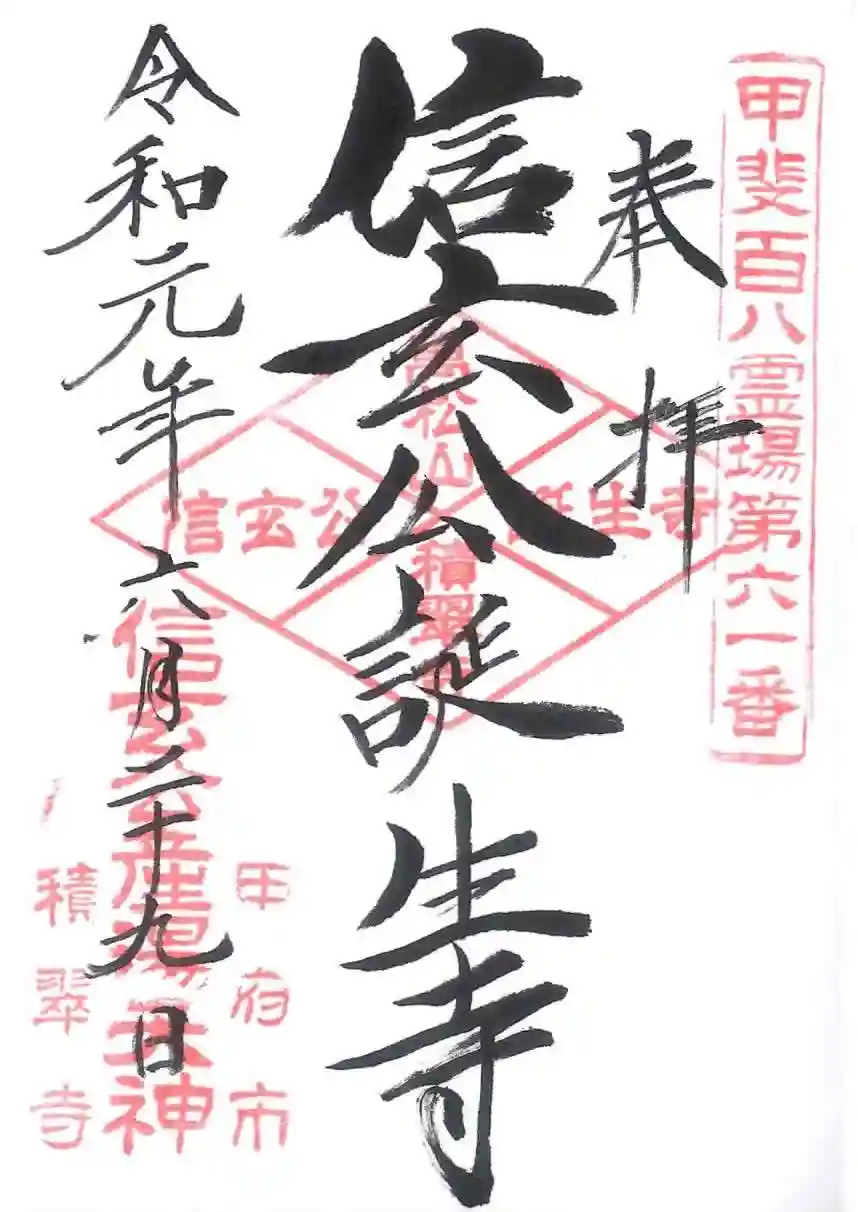 甲斐百八霊場第六一番
奉拝
信玄公誕生寺
高松山積翠寺
信玄公誕生寺
令和元年六月二十九日
甲府市
信玄公産湯天神
積翠寺